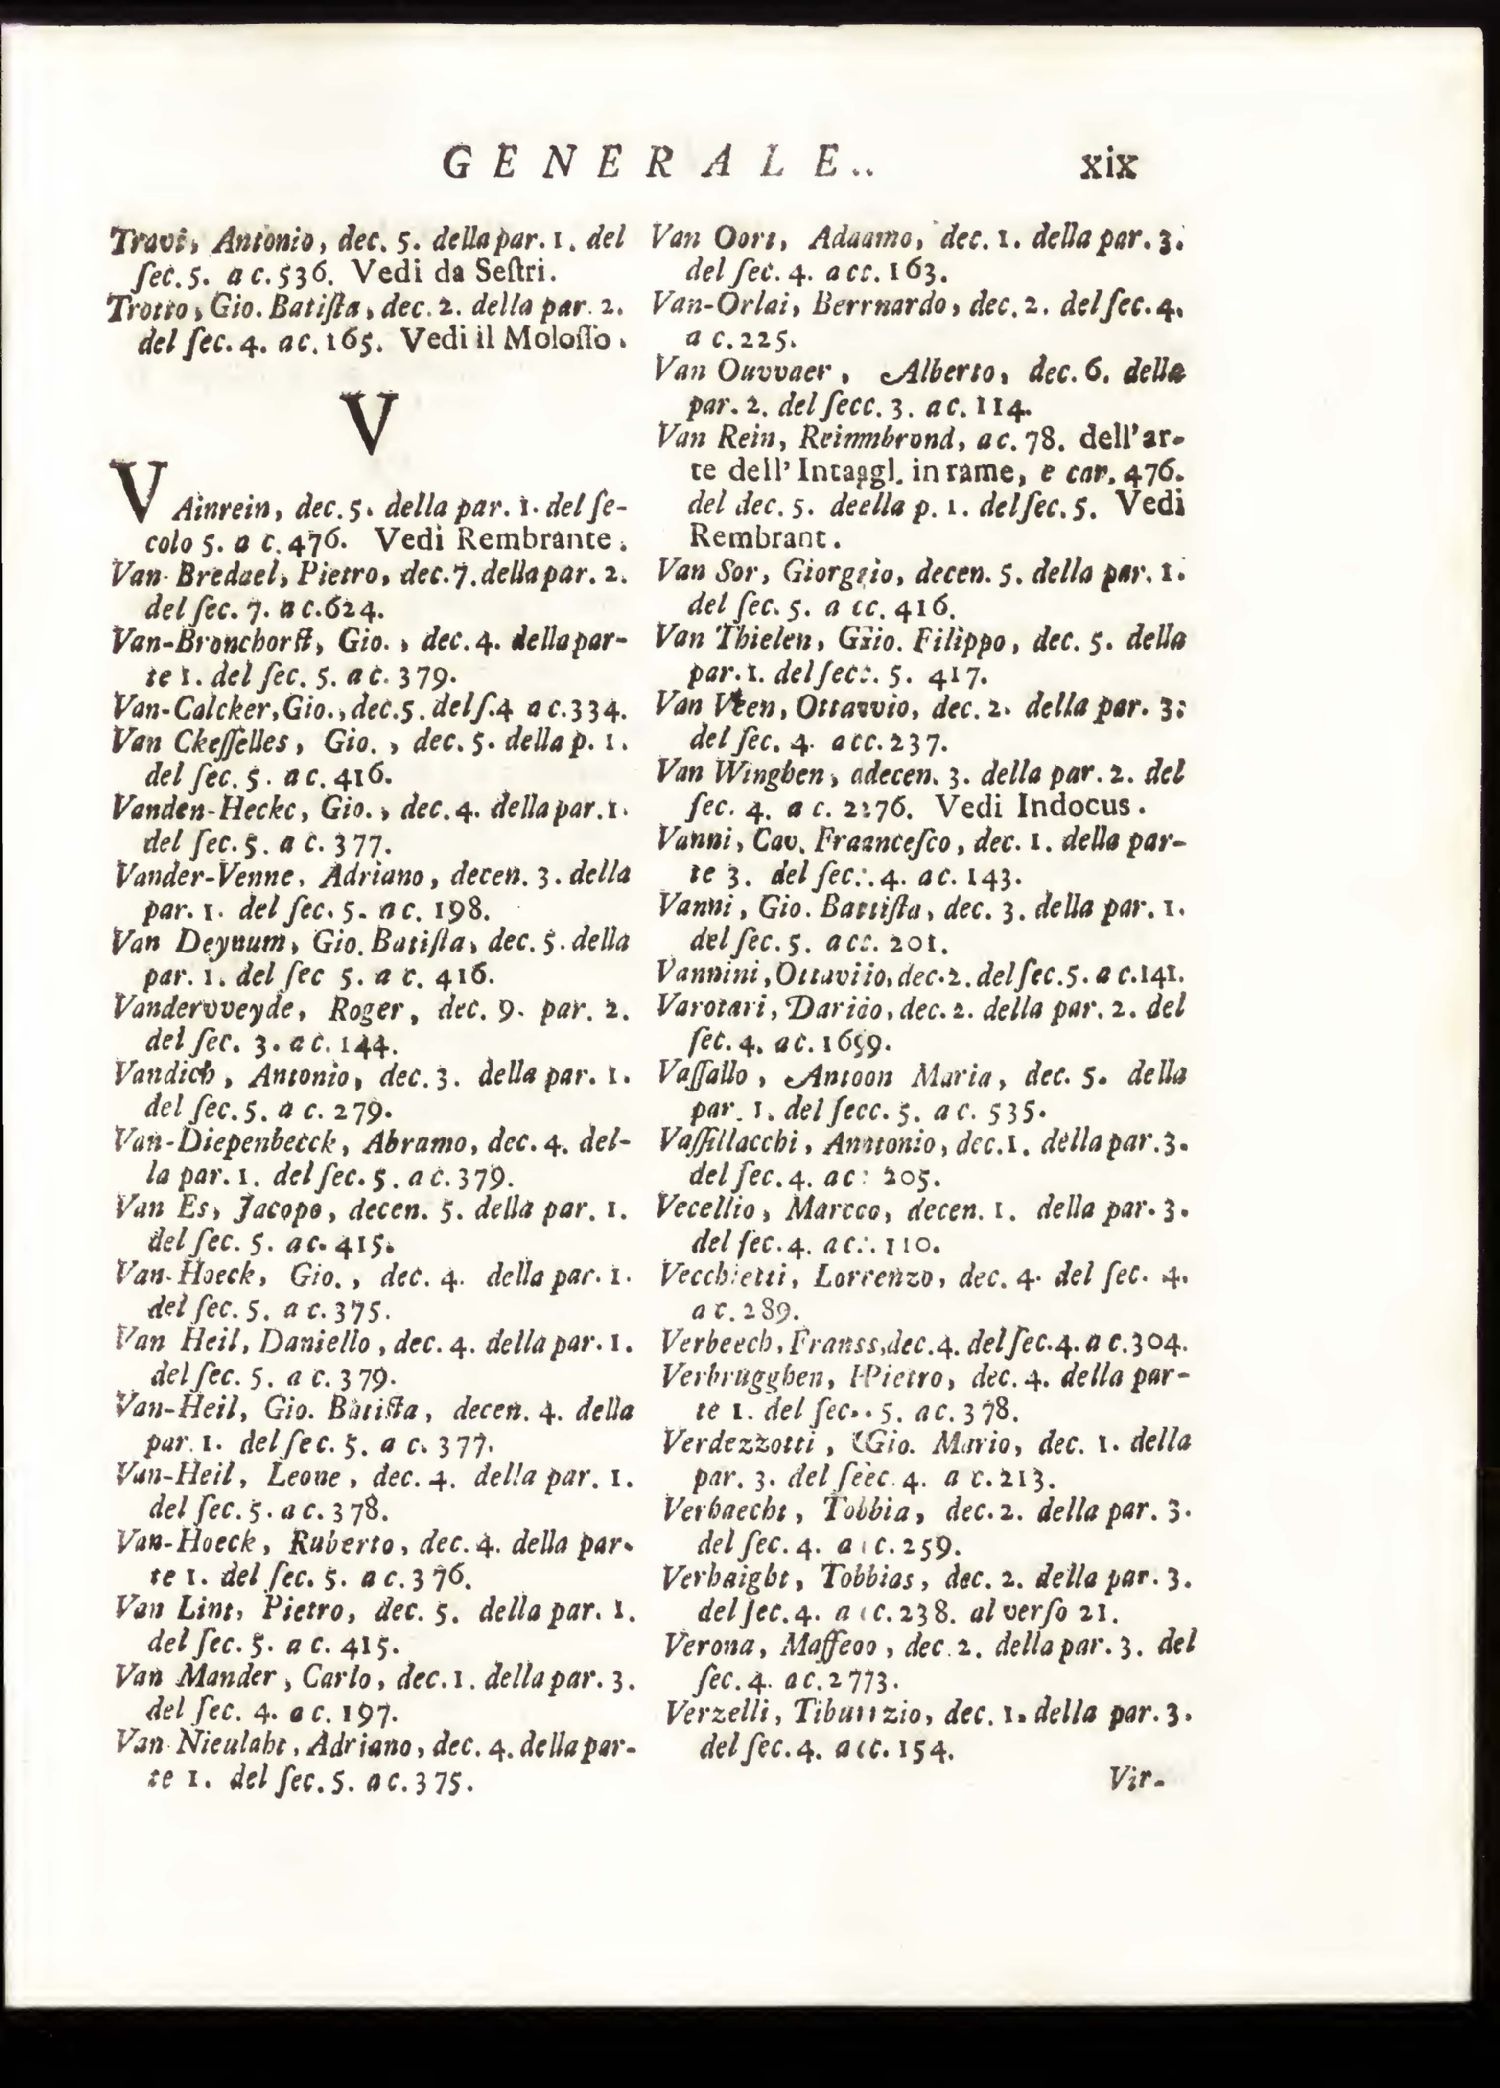 GENERALE.. xix
Travi, Antonio, dec. 5. della par. 1. del
ſec. 5. a c. 536. Vedi da Seſtri.
Trotto, Gio. Batiſta, dec. 2. della par. 2.
del ſec. 4. a c. 165. Vedi il Moloſſo.
V
VAinrein, dec. 5. della par. 1. del ſe-
colo 5. a c. 476. Vedi Rembrante.
Van Bredael, Pietro, dec. 7. della par. 2.
del ſec. 7. a c. 624.
Van-Bronchorst, Gio., dec. 4. della par-
te 1. del ſec. 5. a c. 379.
Van-Calcker, Gio., dec. 5. del ſ. 4 a c. 334.
Van Ckeſſelles, Gio., dec. 5. della p. 1.
del ſec. 5. a c. 416.
Vanden-Hecke, Gio., dec. 4. della par. 1.
del ſec. 5. a c. 377.
Vander-Venne, Adriano, decen. 3. della
par. 1. del ſec. 5. a c. 198.
Van Deynum, Gio. Batiſta, dec. 5. della
par. 1. del ſec 5. a c. 416.
Vandervveyde, Roger, dec. 9. par. 2.
del ſec. 3. a c. 144.
Vandich, Antonio, dec. 3. della par. 1.
del ſec. 5. a c. 279.
Van-Diepenbecck, Abramo, dec. 4. del-
la par. 1. del ſec. 5. a c. 379.
Van Es, Jacopo, decen. 5. della par. 1.
del ſec. 5. a c. 415.
Van-Hoeck, Gio., dec. 4. della par. 1.
del ſec. 5. a c. 375.
Van Heil, Daniello, dec. 4. della par. 1.
del ſec. 5. a c. 379.
Van-Heil, Gio. Batista, decen. 4. della
par. 1. del ſec. 5. a c. 377.
Van-Heil, Leone, dec. 4. della par. 1.
del ſec. 5. a c. 378.
Van-Hoeck, Ruberto, dec. 4. della par-
te 1. del ſec. 5. a c. 376.
Van Lint, Pietro, dec. 5. della par. 1.
del ſec. 5. a c. 415.
Van Mander, Carlo, dec. 1. della par. 3.
del ſec. 4. a c. 197.
Van Nieulaht, Adriano, dec. 4. della par-
te 1. del ſec. 5. a c. 375.
Van Oort, Adaamo, dec. 1. della par. 3.
del ſec. 4. a cc. 163.
Van-Orlai, Berrnardo, dec. 2. del ſec. 4.
a c. 225.
Van Ouvvaer, Alberto, dec. 6. della
par. 2. del ſecc. 3. a c. 114.
Van Rein, Reinmbrond, a c. 78. dell'ar-
te dell' Intaagl. in rame, e car. 476.
del dec. 5. deella p. 1. del ſec. 5. Vedi
Rembrant.
Van Sor, Giorggio, decen. 5. della par. 1.
del ſec. 5. a cc. 416.
Van Thielen, Giio. Filippo, dec. 5. della
par. 1. del ſecc. 5. 417.
Van Veen, Ottavvio, dec. 2. della par. 3.
del ſec. 4. a cc. 237.
Van Winghen, adecen. 3. della par. 2. del
ſec. 4. a c. 2276. Vedi Indocus.
Vanni, Cav. Fraanceſco, dec. 1. della par-
te 3. del ſec. 4. a c. 143.
Vanni, Gio. Battiſta, dec. 3. della par. 1.
del ſec. 5. a cc. 201.
Vannini, Ottaviio, dec. 2. del ſec. 5. a c. 141.
Varotari, Darioo, dec. 2. della par. 2. del
ſec. 4. a c. 1659.
Vaſſallo, Antoon Maria, dec. 5. della
par. 1. del ſecc. 5. a c. 535.
Vaſſillacchi, Anntonio, dec. 1. della par. 3.
del ſec. 4. a c: 205.
Vecellio, Marcco, decen. 1. della par. 3.
del ſec. 4. a c.. 110.
Vecchietti, Lorrenzo, dec. 4. del ſec. 4.
a c. 289.
Verbeech, Franss, dec. 4. del ſec. 4. a c. 304.
Verbrugghen, PPietro, dec. 4. della par-
te 1. del ſec.. 5. a c. 378.
Verdezzotti, GGio. Mario, dec. 1. della
par. 3. del ſeec. 4. a c. 213.
Verhaecht, Tobbia, dec. 2. della par. 3.
del ſec. 4. a cc. 259.
Verhaight, Tobbias, dec. 2. della par. 3.
del ſec. 4. a cc. 238. al verſo 21.
Verona, Maffeoo, dec. 2. della par. 3. del
ſec. 4. a c. 2773.
Verzelli, Tiburzio, dec. 1. della par. 3.
del ſec. 4. a cc. 154.
Vir-